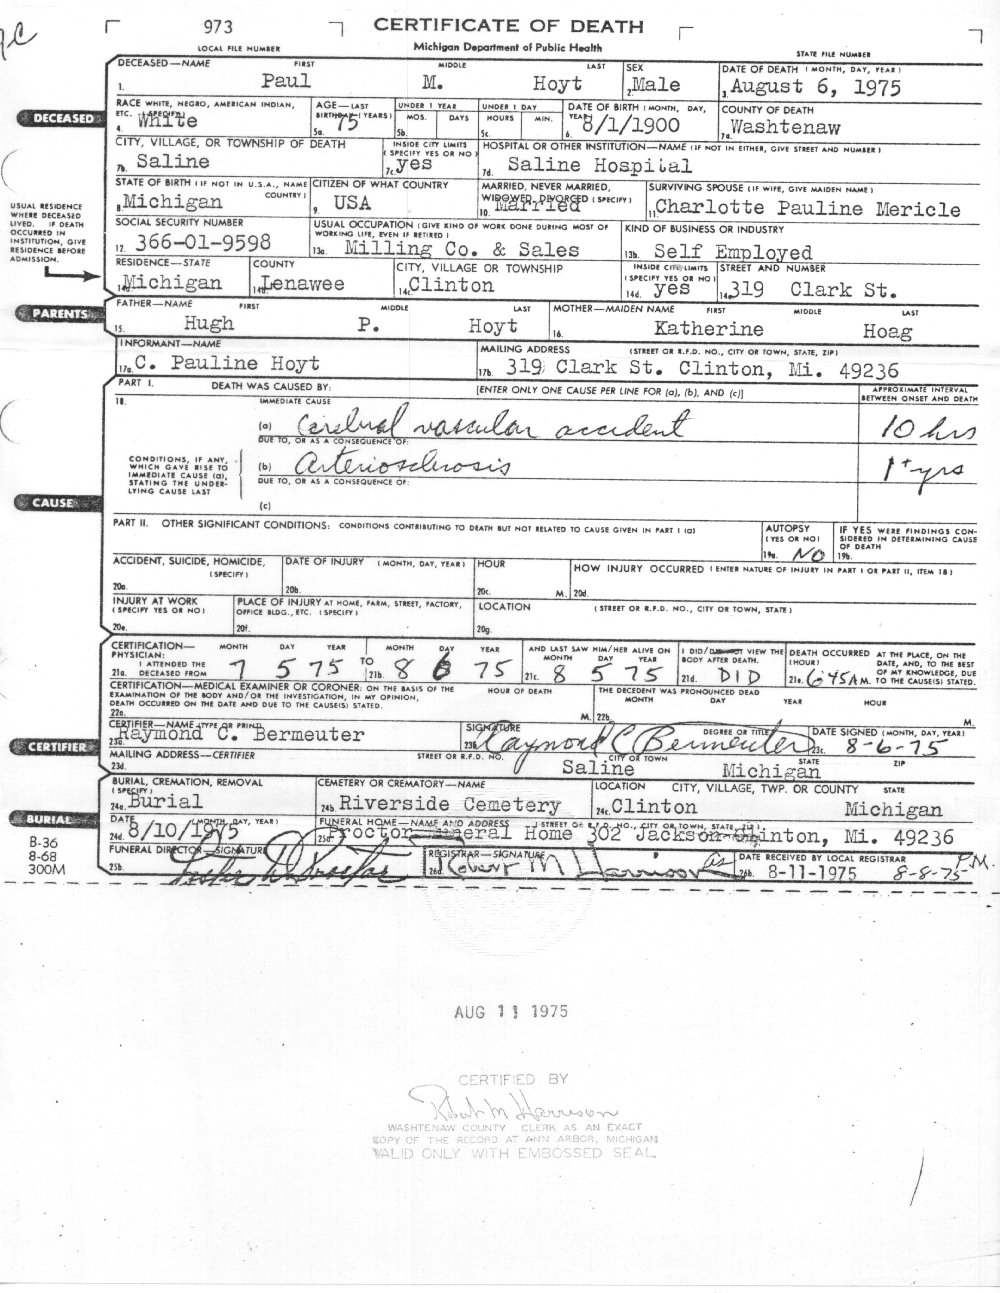 973 CERTIFICATE OF DEATH
LOCAL FILE NUMBER Michigan Department of Public Health STATE FILE NUMBER
DECEASED—NAME FIRST MIDDLE LAST SEX DATE OF DEATH (MONTH, DAY, YEAR)
1. Paul M. Hoyt 2. Male 3. August 6, 1975
DECEASED
RACE WHITE, NEGRO, AMERICAN INDIAN, ETC. (SPECIFY) AGE—LAST BIRTHDAY (YEARS) UNDER 1 YEAR MOS. DAYS UNDER 1 DAY HOURS MIN. DATE OF BIRTH (MONTH, DAY, YEAR) COUNTY OF DEATH
4. White 5a. 75 5b. 5c. 6. 8/1/1900 7a. Washtenaw
CITY, VILLAGE, OR TOWNSHIP OF DEATH INSIDE CITY LIMITS (SPECIFY YES OR NO) HOSPITAL OR OTHER INSTITUTION—NAME (IF NOT IN EITHER, GIVE STREET AND NUMBER)
7b. Saline 7c. yes 7d. Saline Hospital
STATE OF BIRTH (IF NOT IN U.S.A., NAME COUNTRY) CITIZEN OF WHAT COUNTRY MARRIED, NEVER MARRIED, WIDOWED, DIVORCED (SPECIFY) SURVIVING SPOUSE (IF WIFE, GIVE MAIDEN NAME)
8. Michigan 9. USA 10. Married 11. Charlotte Pauline Mericle
USUAL RESIDENCE WHERE DECEASED LIVED. IF DEATH OCCURRED IN INSTITUTION, GIVE RESIDENCE BEFORE ADMISSION.
SOCIAL SECURITY NUMBER USUAL OCCUPATION (GIVE KIND OF WORK DONE DURING MOST OF WORKING LIFE, EVEN IF RETIRED) KIND OF BUSINESS OR INDUSTRY
12. 366-01-9598 13a. Milling Co. & Sales 13b. Self Employed
RESIDENCE—STATE COUNTY CITY, VILLAGE OR TOWNSHIP INSIDE CITY LIMITS (SPECIFY YES OR NO) STREET AND NUMBER
14a. Michigan 14b. Lenawee 14c. Clinton 14d. yes 14e. 319 Clark St.
PARENTS
FATHER—NAME FIRST MIDDLE LAST MOTHER—MAIDEN NAME FIRST MIDDLE LAST
15. Hugh P. Hoyt 16. Katherine Hoag
INFORMANT—NAME MAILING ADDRESS (STREET OR R.F.D. NO., CITY OR TOWN, STATE, ZIP)
17a. C. Pauline Hoyt 17b. 319 Clark St. Clinton, Mi. 49236
PART I. DEATH WAS CAUSED BY: [ENTER ONLY ONE CAUSE PER LINE FOR (a), (b), AND (c)] APPROXIMATE INTERVAL BETWEEN ONSET AND DEATH
18. IMMEDIATE CAUSE
(a) Cerebral vascular accident 10 hrs
DUE TO, OR AS A CONSEQUENCE OF:
CONDITIONS, IF ANY, WHICH GAVE RISE TO IMMEDIATE CAUSE (a), STATING THE UNDERLYING CAUSE LAST
(b) Arteriosclerosis 1+ yrs
DUE TO, OR AS A CONSEQUENCE OF:
(c)
CAUSE
PART II. OTHER SIGNIFICANT CONDITIONS: CONDITIONS CONTRIBUTING TO DEATH BUT NOT RELATED TO CAUSE GIVEN IN PART I (a) AUTOPSY (YES OR NO) IF YES WERE FINDINGS CONSIDERED IN DETERMINING CAUSE OF DEATH
19a. NO 19b.
ACCIDENT, SUICIDE, HOMICIDE, (SPECIFY) DATE OF INJURY (MONTH, DAY, YEAR) HOUR HOW INJURY OCCURRED (ENTER NATURE OF INJURY IN PART I OR PART II, ITEM 18)
20a. 20b. 20c. M. 20d.
INJURY AT WORK (SPECIFY YES OR NO) PLACE OF INJURY AT HOME, FARM, STREET, FACTORY, OFFICE BLDG., ETC. (SPECIFY) LOCATION (STREET OR R.F.D. NO., CITY OR TOWN, STATE)
20e. 20f. 20g.
CERTIFICATION—PHYSICIAN: MONTH DAY YEAR MONTH DAY YEAR AND LAST SAW HIM/HER ALIVE ON MONTH DAY YEAR I DID/DID NOT VIEW THE BODY AFTER DEATH. DEATH OCCURRED (HOUR) AT THE PLACE, ON THE DATE, AND, TO THE BEST OF MY KNOWLEDGE, DUE TO THE CAUSE(S) STATED.
21a. I ATTENDED THE DECEASED FROM 7 5 75 TO 21b. 8 6 75 21c. 8 5 75 21d. DID 21e. 6:45 A M.
CERTIFICATION—MEDICAL EXAMINER OR CORONER: ON THE BASIS OF THE EXAMINATION OF THE BODY AND/OR THE INVESTIGATION, IN MY OPINION, DEATH OCCURRED ON THE DATE AND DUE TO THE CAUSE(S) STATED. HOUR OF DEATH THE DECEDENT WAS PRONOUNCED DEAD MONTH DAY YEAR HOUR
22a. M. 22b. M.
CERTIFIER—NAME (TYPE OR PRINT) SIGNATURE DEGREE OR TITLE DATE SIGNED (MONTH, DAY, YEAR)
23a. Raymond C. Bermeuter 23b. Raymond C Bermeuter 23c. 8-6-75
CERTIFIER
MAILING ADDRESS—CERTIFIER STREET OR R.F.D. NO. CITY OR TOWN STATE ZIP
23d. Saline Michigan
BURIAL, CREMATION, REMOVAL (SPECIFY) CEMETERY OR CREMATORY—NAME LOCATION CITY, VILLAGE, TWP. OR COUNTY STATE
24a. Burial 24b. Riverside Cemetery 24c. Clinton Michigan
BURIAL
DATE (MONTH, DAY, YEAR) FUNERAL HOME—NAME AND ADDRESS (STREET OR R.F.D. NO., CITY OR TOWN, STATE, ZIP)
24d. 8/10/1975 25a. Proctor Funeral Home 302 Jackson Clinton, Mi. 49236
B-36
8-68
300M
FUNERAL DIRECTOR—SIGNATURE REGISTRAR—SIGNATURE DATE RECEIVED BY LOCAL REGISTRAR
25b. 26a. Robert M Harrison 26b. 8-11-1975 8-8-75 P.M.
AUG 11 1975
CERTIFIED BY
Robert M Harrison
WASHTENAW COUNTY CLERK AS AN EXACT
COPY OF THE RECORD AT ANN ARBOR, MICHIGAN
VALID ONLY WITH EMBOSSED SEAL